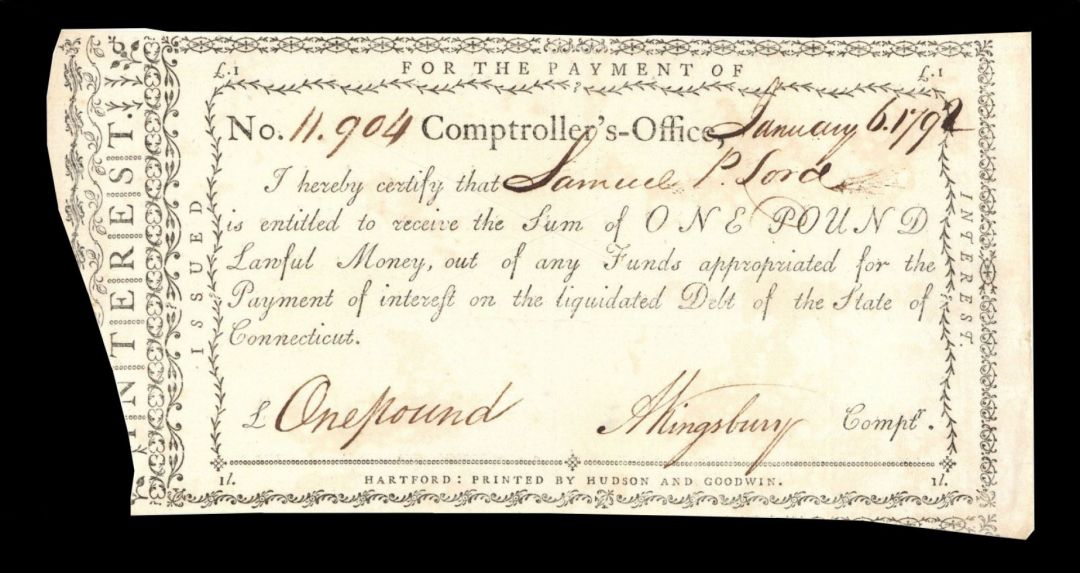 £.1 FOR THE PAYMENT OF £.1
No. 11.904 Comptroller's-Office, January 6. 1792
I hereby certify that Samuel P. Lord
is entitled to receive the Sum of ONE POUND
Lawful Money, out of any Funds appropriated for the
Payment of interest on the liquidated Debt of the State of
Connecticut.
£ One pound AKingsbury Comptr.
1/. HARTFORD: PRINTED BY HUDSON AND GOODWIN. 1/.
INTEREST.
ISSUED
INTEREST.